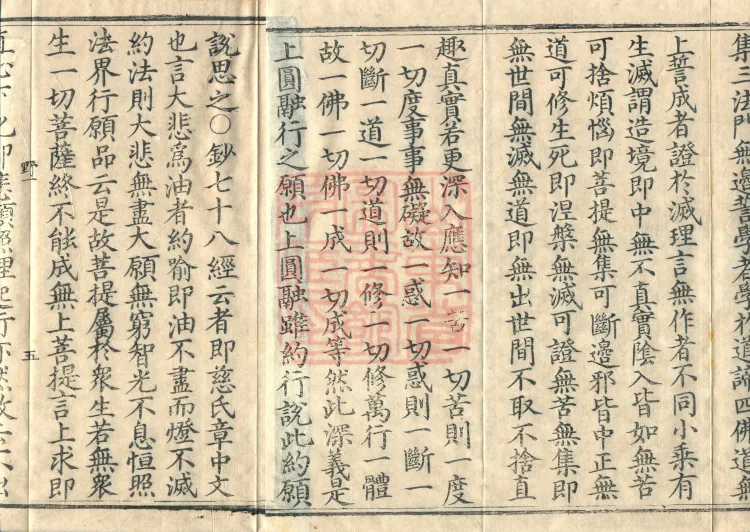 集三法門無邊誓學者學於道諦四佛道無
上誓成者證於滅理言無作者不同小乘有
生滅謂造境即中無不真實陰入皆如無苦
可捨煩惱即菩提無集可斷邊邪皆中正無
道可修生死即涅槃無滅可證無苦無集即
無世間無滅無道即無出世間不取不捨直
趣真實若更深入應知一苦一切苦則一度
一切度事事無礙故一惑一切惑則一斷一
切斷一道一切道則一修一切修萬行一體
故一佛一切佛一成一切成等然此深義是
上圓融行之願也上圓融雖約行說此約願
說思之〇鈔七十八經云者即慈氏章中文
也言大悲為油者約喻即油不盡而燈不滅
約法則大悲無盡大願無窮智光不息恒照
法界行願品云是故菩提屬於眾生若無眾
生一切菩薩終不能成無上菩提言上求即
野 五